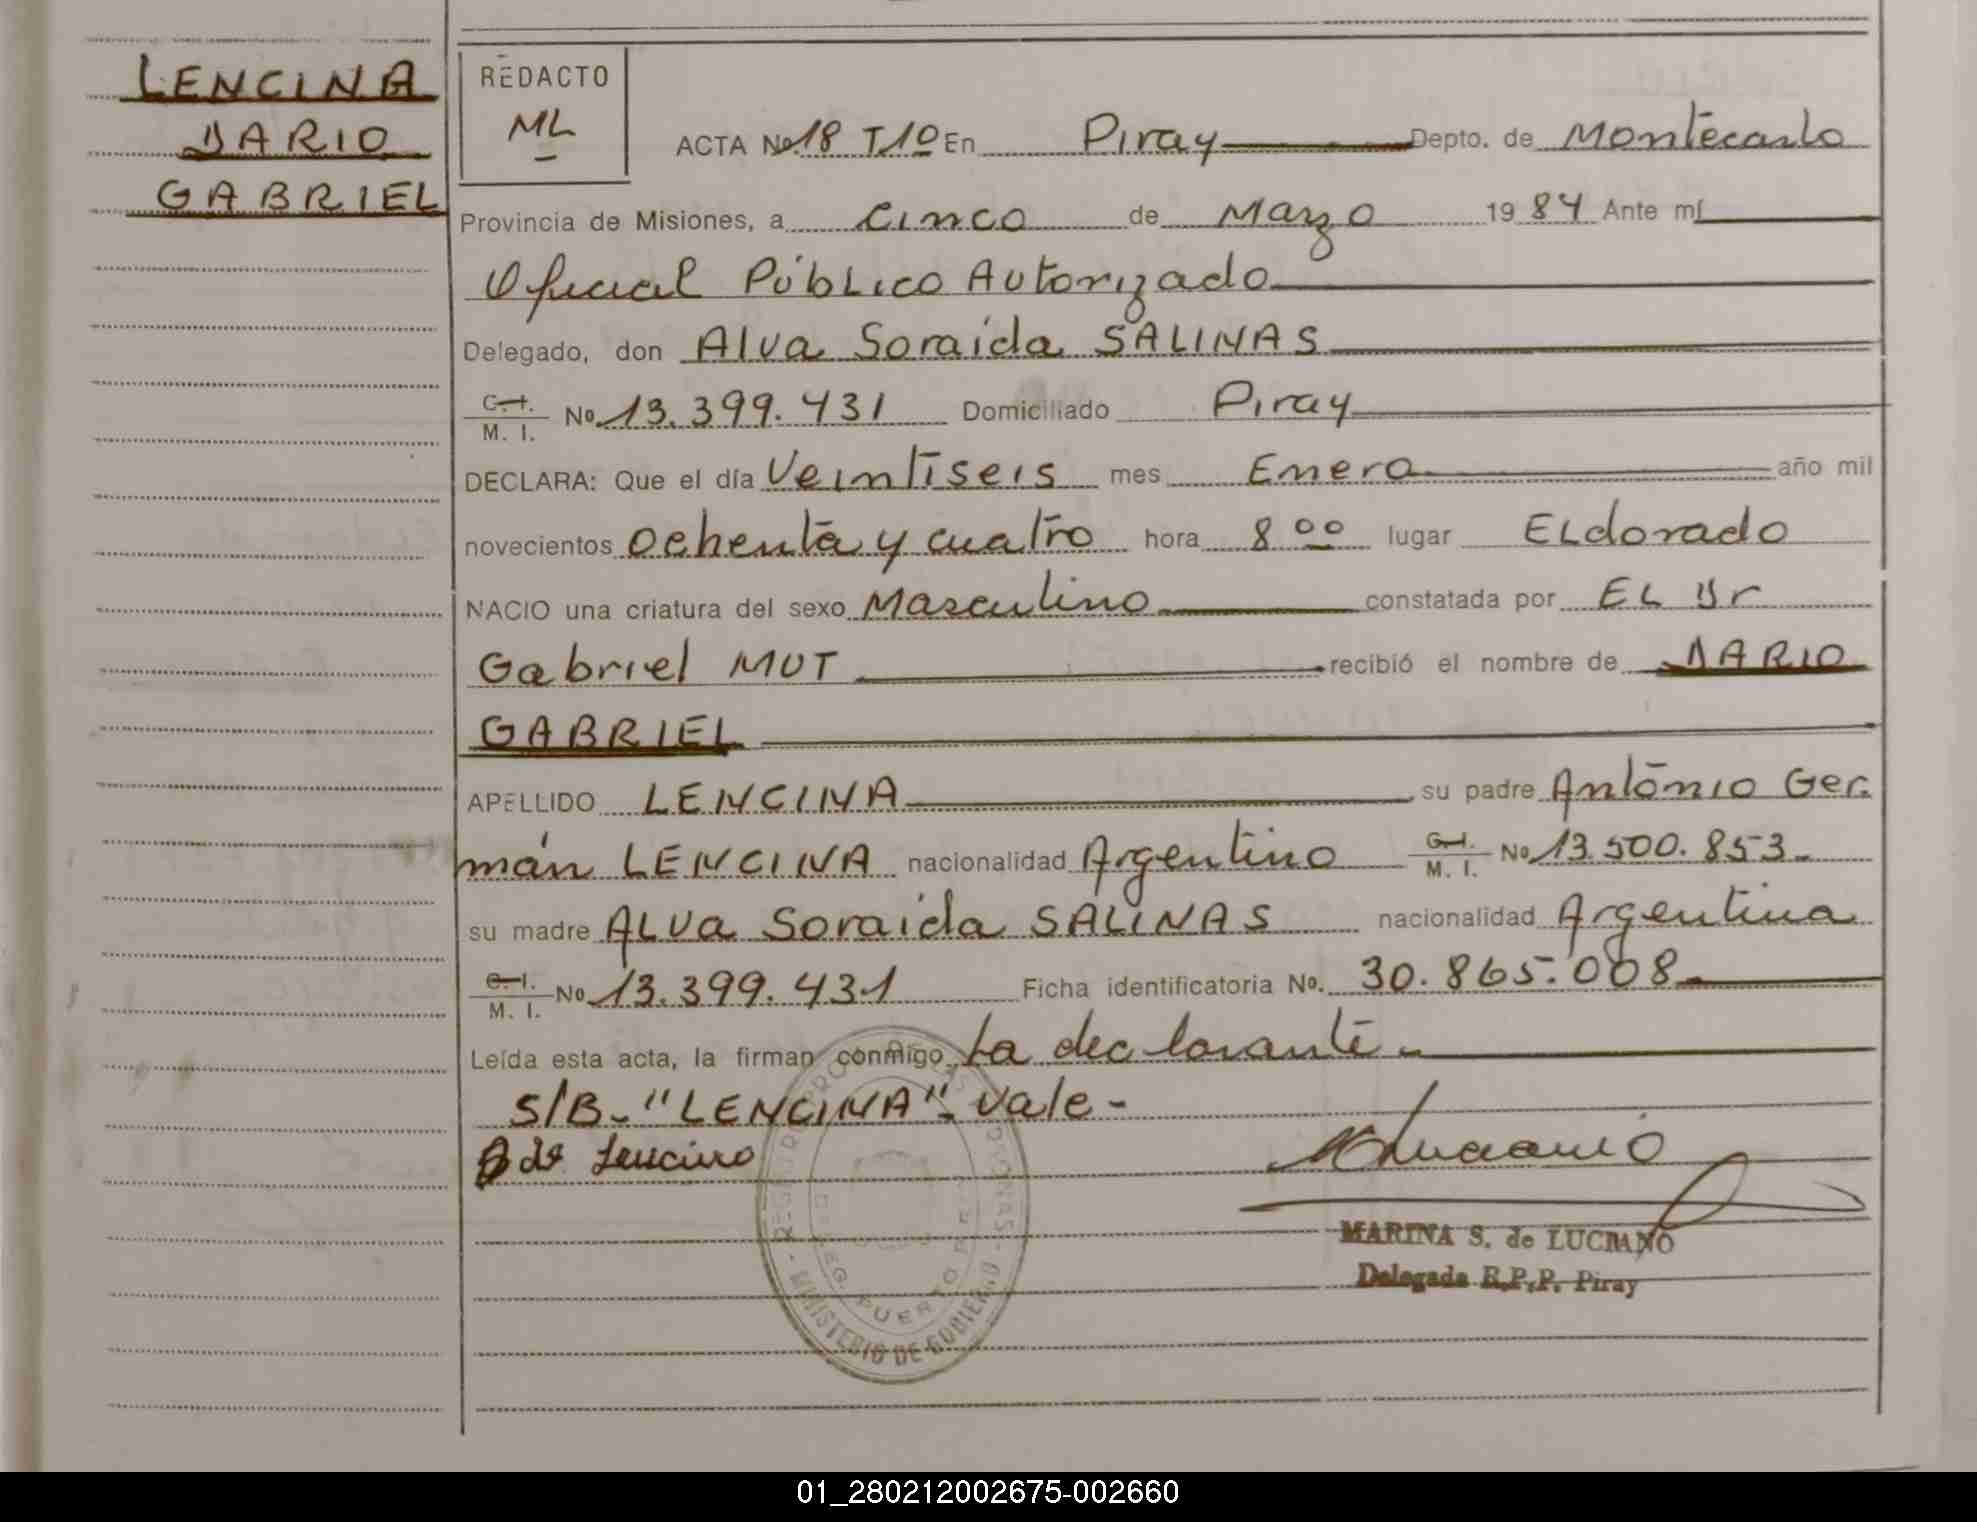 LENCINA
DARIO
GABRIEL
REDACTO
ML
ACTA No. 18 T1º En Piray Depto. de Montecarlo
Provincia de Misiones, a cinco de Marzo 1984 Ante mí
Oficial Público Autorizado
Delegado, don Alva Soraida SALINAS
C. I.
M. I. No 13.399.431 Domiciliado Piray
DECLARA: Que el día Veintiseis mes Enero año mil
novecientos ochenta y cuatro hora 8 00 lugar ELdorado
NACIO una criatura del sexo Masculino constatada por EL Dr
Gabriel MUT recibió el nombre de DARIO
GABRIEL
APELLIDO LENCINA su padre António Ger.
mán LENCINA nacionalidad Argentino C. I. M. I. No 13.500.853.-
su madre ALva Soraida SALINAS nacionalidad Argentina
C. I.
M. I. No 13.399.431 Ficha identificatoria No. 30.865.008
Leída esta acta, la firman conmigo La declarante.-
S/B-"LENCINA"- Vale-
de Lencina
MARINA S. de LUCIANO
Delegada R.P.P. Piray
MINISTERIO DE GOBIERNO
PUERTO
01_280212002675-002660